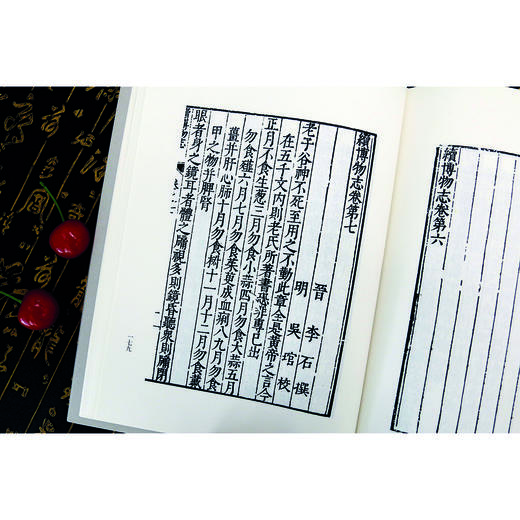 續博物志卷第六
續博物志卷第七
晉李石撰
明吳琯校
老子谷神不死至用之不動此章全是黃帝之言今
在五千文內則老氏所著書恐非專己出
正月不食生葱三月勿食小蒜四月勿食大蒜五月
勿食薤六月七月勿食茱萸成血痢八九月勿食
薑并肝心肺十月勿食椒十一月十二月勿食鱗
甲之物并脾腎
眼者身之鏡耳者體之牖視多則鏡昏聽衆則牖閉
一七九